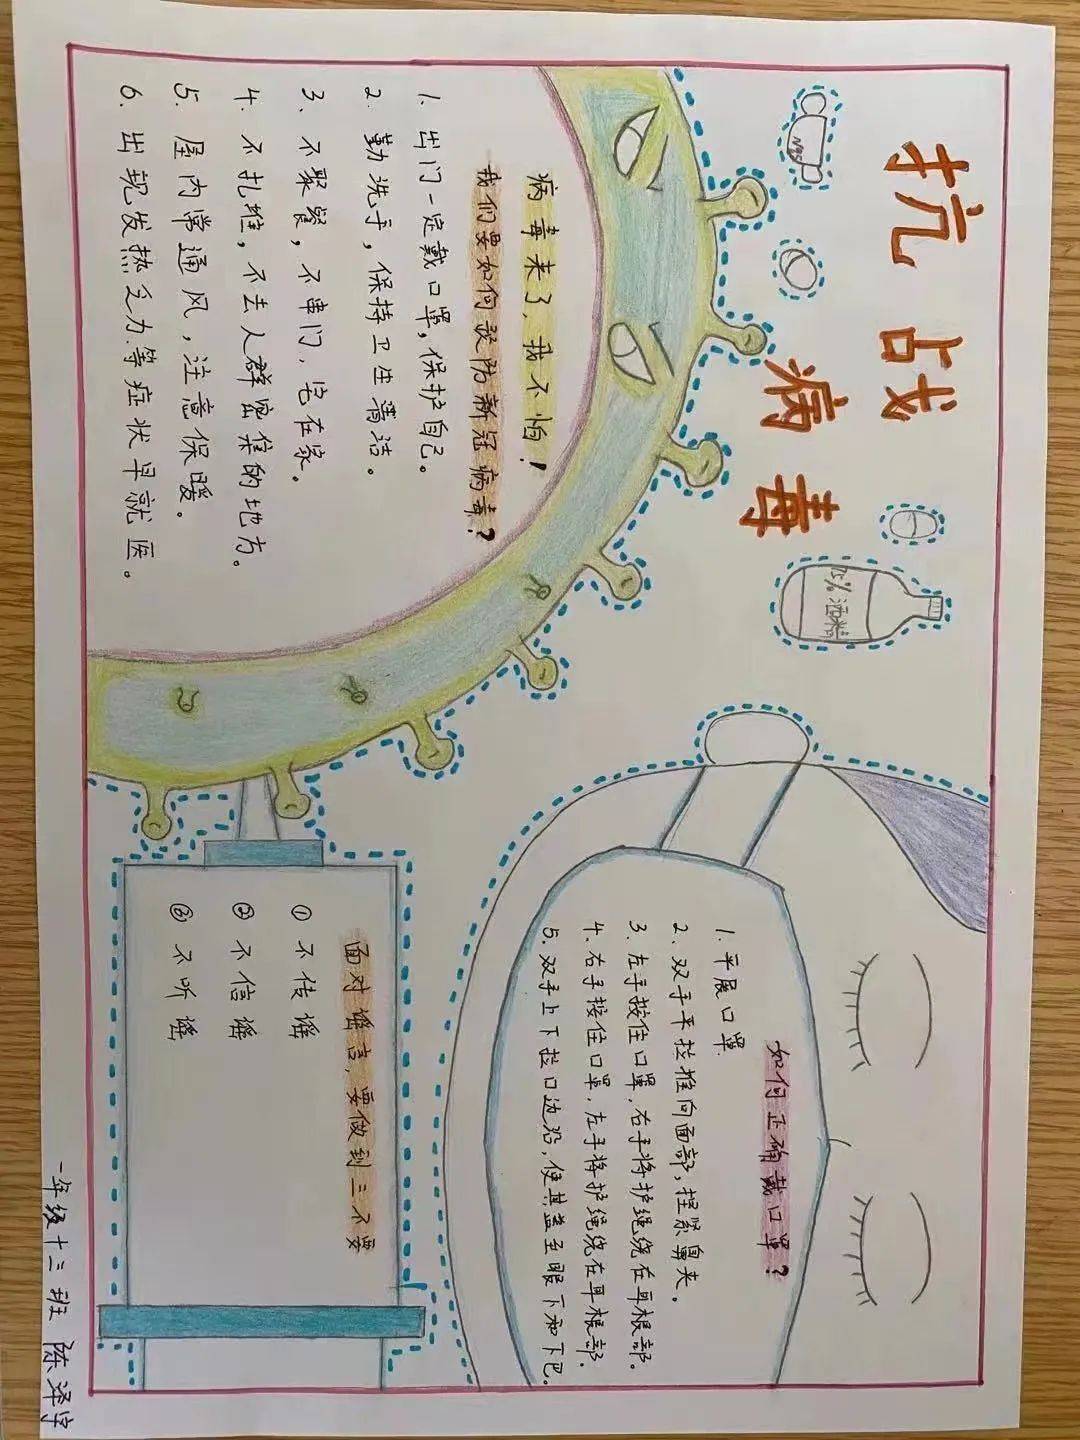 抗战
病毒
N95
75%
酒精
病毒来了，我不怕！
我们要如何预防新冠病毒？
1、出门一定戴口罩，保护自己。
2、勤洗手，保持卫生清洁。
3、不聚餐，不串门，宅在家。
4、不扎堆，不去人群密集的地方。
5、屋内常通风，注意保暖。
6、出现发热乏力等症状早就医。
如何正确戴口罩？
1、平展口罩
2、双手平拉推向面部，捏紧鼻夹。
3、左手按住口罩，右手将护绳绕在耳根部。
4、右手按住口罩，左手将护绳绕在耳根部。
5、双手上下拉口边沿，使其盖至眼下和下巴。
面对谣言，要做到三不要
① 不传谣
② 不信谣
③ 不听谣
一年级十三班 陈泽宇